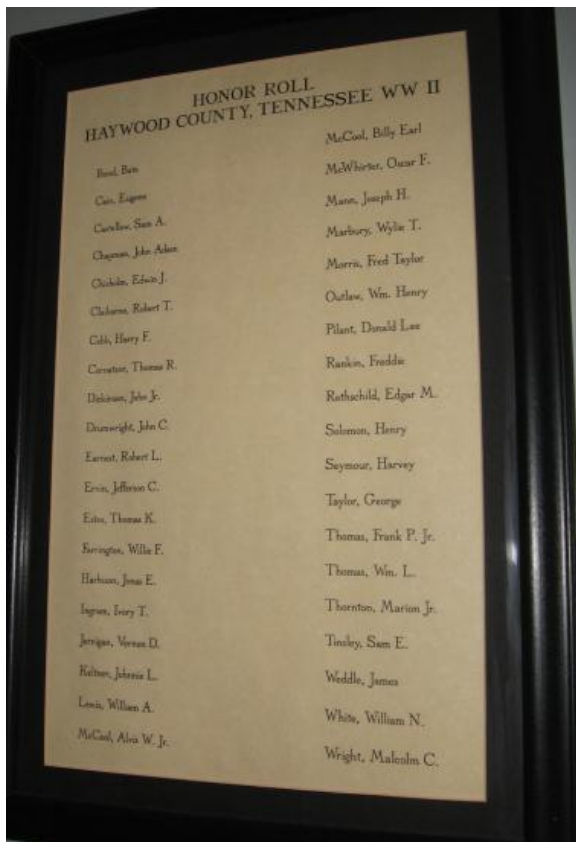 HONOR ROLL
HAYWOOD COUNTY, TENNESSEE WW II
Bond, Bate
Cain, Eugene
Castellaw, Sam A.
Chapman, John Adam
Chisholm, Edwin J.
Claiborne, Robert T.
Cobb, Harry F.
Thomas R.
Dickinson, John Jr.
Drumwright, John C.
Earnest, Robert L.
Ervin, Jefferson C.
Estes, Thomas K.
Farrington, Willie F.
Harbison, Jonas E.
Ingram, Ivory T.
Jarrigan, Vernon D.
Keltner, Johnnie L.
Lewis, William A.
McCool, Alvis W. Jr.
McCool, Billy Earl
McWhirter, Oscar F.
Mann, Joseph H.
Marbury, Wylie T.
Morris, Fred Taylor
Outlaw, Wm. Henry
Pilant, Donald Lee
Rankin, Freddie
Rothschild, Edgar M.
Solomon, Henry
Seymour, Harvey
Taylor, George
Thomas, Frank P. Jr.
Thomas, Wm. L.
Thornton, Marion Jr.
Tinsley, Sam E.
Weddle, James
White, William N.
Wright, Malcolm C.